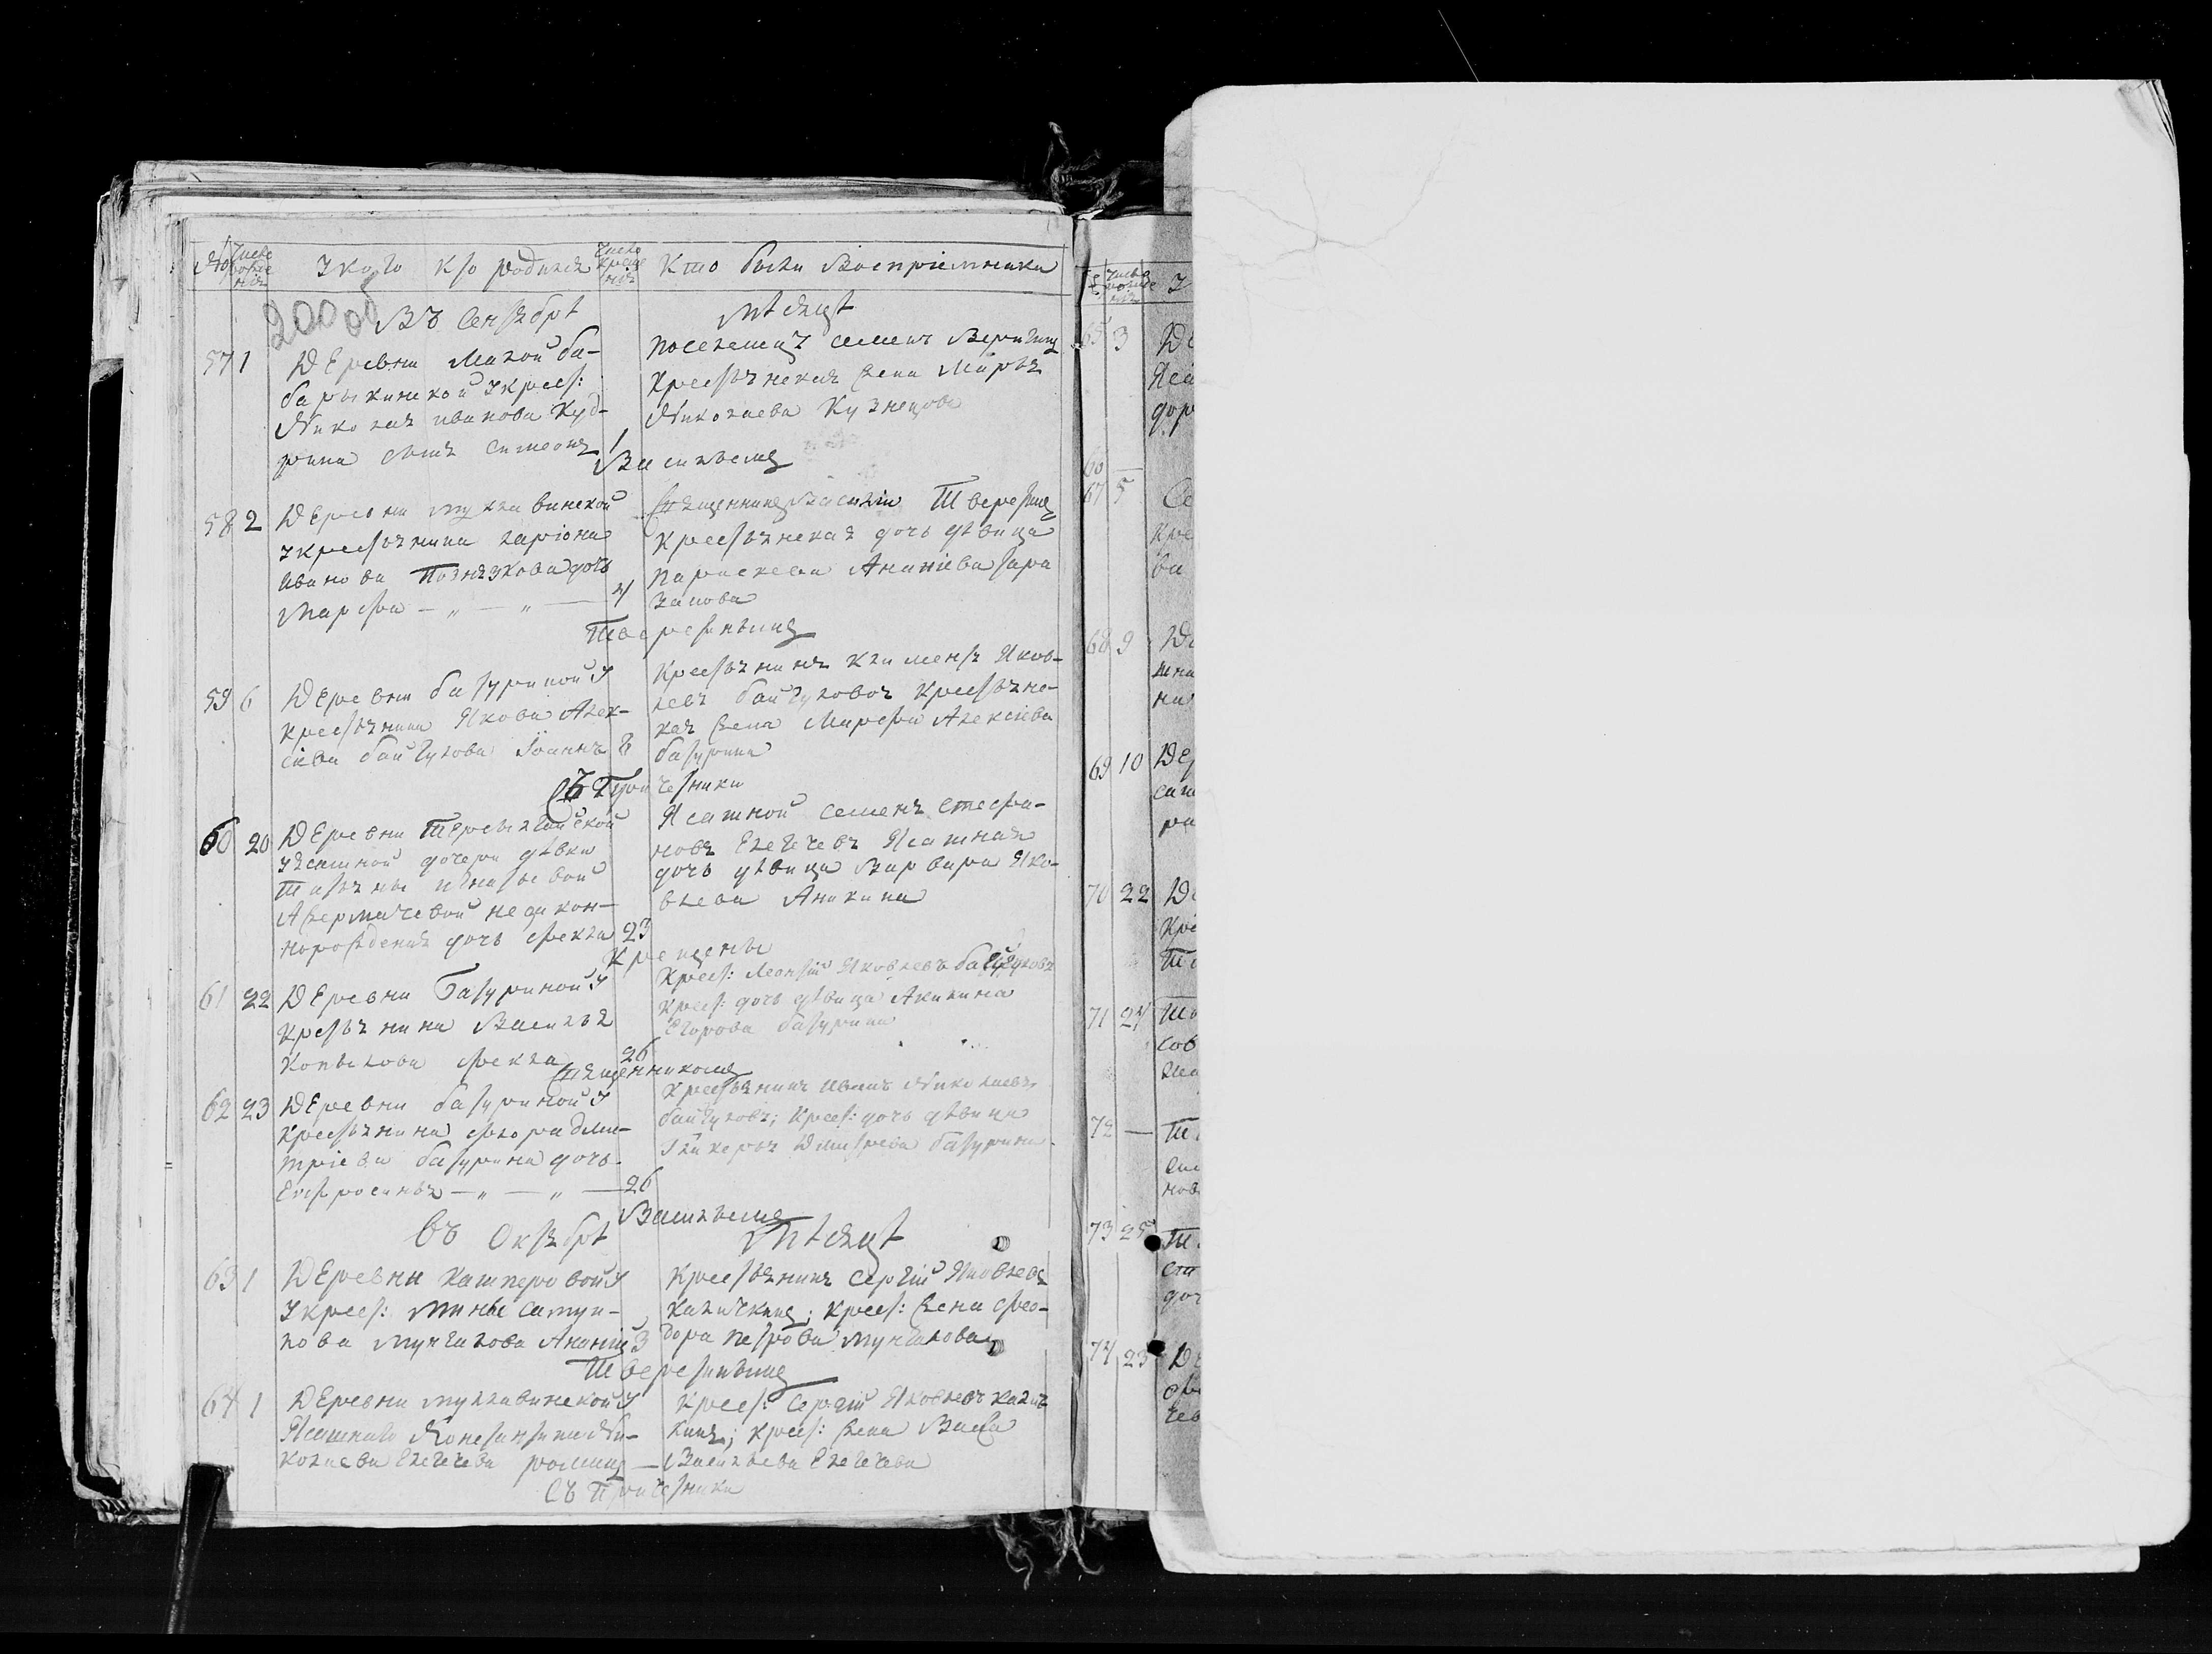 № Число рожденія У кого кто родился Число крещенія Кто были Воспріемники
200 об
Въ Сентябрѣ Мѣсяцѣ
57 1 Деревни Малой ба-
барыкинской у крест:
Николая иванова Куд-
рина сынъ Симеонъ 1
поселенецъ семенъ Веригинъ
Крестьянская жена Марья
Николаева Кузнецова
Васильемъ
58 2 Деревни муллавинской
у крестьянина ларіона
иванова Познякова дочь
Марфа — „ — „ — 4
Священникъ Василій Тверетинъ
Крестьянская дочь дѣвица
параскева Ананіева тара
канова
Тверетинымъ
59 6 Деревни батуриной У
крестьянина Якова Алек-
сіева байгулова Іоаннъ 8
Крестьянинъ Климентъ Яков-
левъ байгуловъ Крестьянс-
кая жена Марфа Алексіева
батурина
Съ Причетники
60 20 Деревни
у ясашной дочери дѣвки
Татьяны Игнатьевой
незакон-
норожденная дочь Фекла 23
Ясашной семенъ стефа-
новъ Ясашная
дочь дѣвица Варвара Яко-
влева Аникина
Крещены
61 22 Деревни Батуриной У
Крестьянина Василья
Копылова Фекла 26
Крест: Леонтій Яковлевъ байгуловъ
Крест: дочь дѣвица Акилина
Егорова батурина
Священникомъ
62 23 Деревни батуриной У
Крестьянина Федора дми-
тріева батурина дочь
Ефросинья — „ — „ — 26
Крестьянинъ Иванъ Николаевъ
байгуловъ; Крест: дочь дѣвица
Гликерья Дмитрева батурина.
Васильемъ
Въ Октябрѣ Мѣсяцѣ
63 1 Деревни кашперовой У
У крест: Мины самуи-
лова мунгалова Ананій 3
Крестьянинъ Сергій Яковлевъ
Каличкинъ; Крест: жена Фео-
дора Петрова мунгалова
Тверетинымъ
64 1 Деревни муллавинской У
Ясашнаго Константина Ни-
колаева романъ —
Крест: Сергій Яковлевъ Калич
кинъ; Крест: жена Васса
Васильева
Съ Причетники
65 3 Де
Яса
дор
66 —
67 5 Се
Кре
ва
68 9 Де
69 10 Де
70 22 Де
Кре
71 24
сов
72 —
нов
73 25
74 23 Де
чев